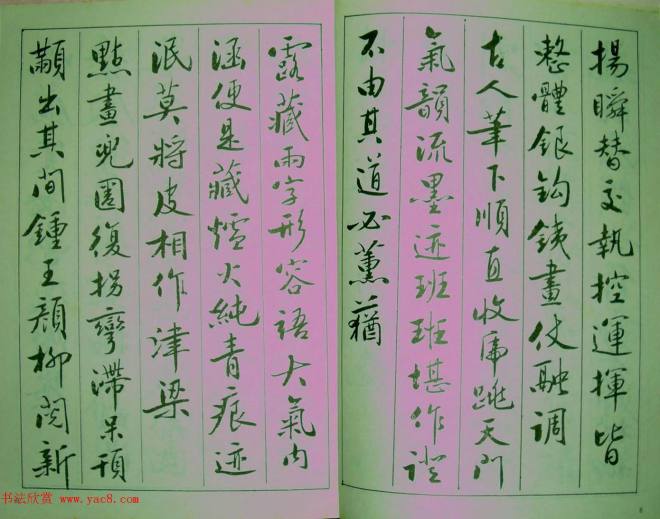 揚瞬替交執控運揮皆
整體銀鈎鐵畫仗融调
古人筆下順直收虎跳天門
氣韻流墨迹班班堪作證
不由其道必薰蕕
露藏兩字形容語大氣内
涵便是藏爐火純青痕迹
泯莫將皮相作津梁
點畫兜圈復拐彎滯呆頑
顢出其间鍾王颜柳閱新
8
书法欣赏 www.yac8.com